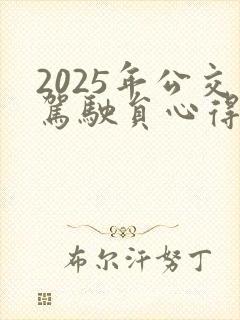 2025年公交
駕駛負心得
布尔汗努丁